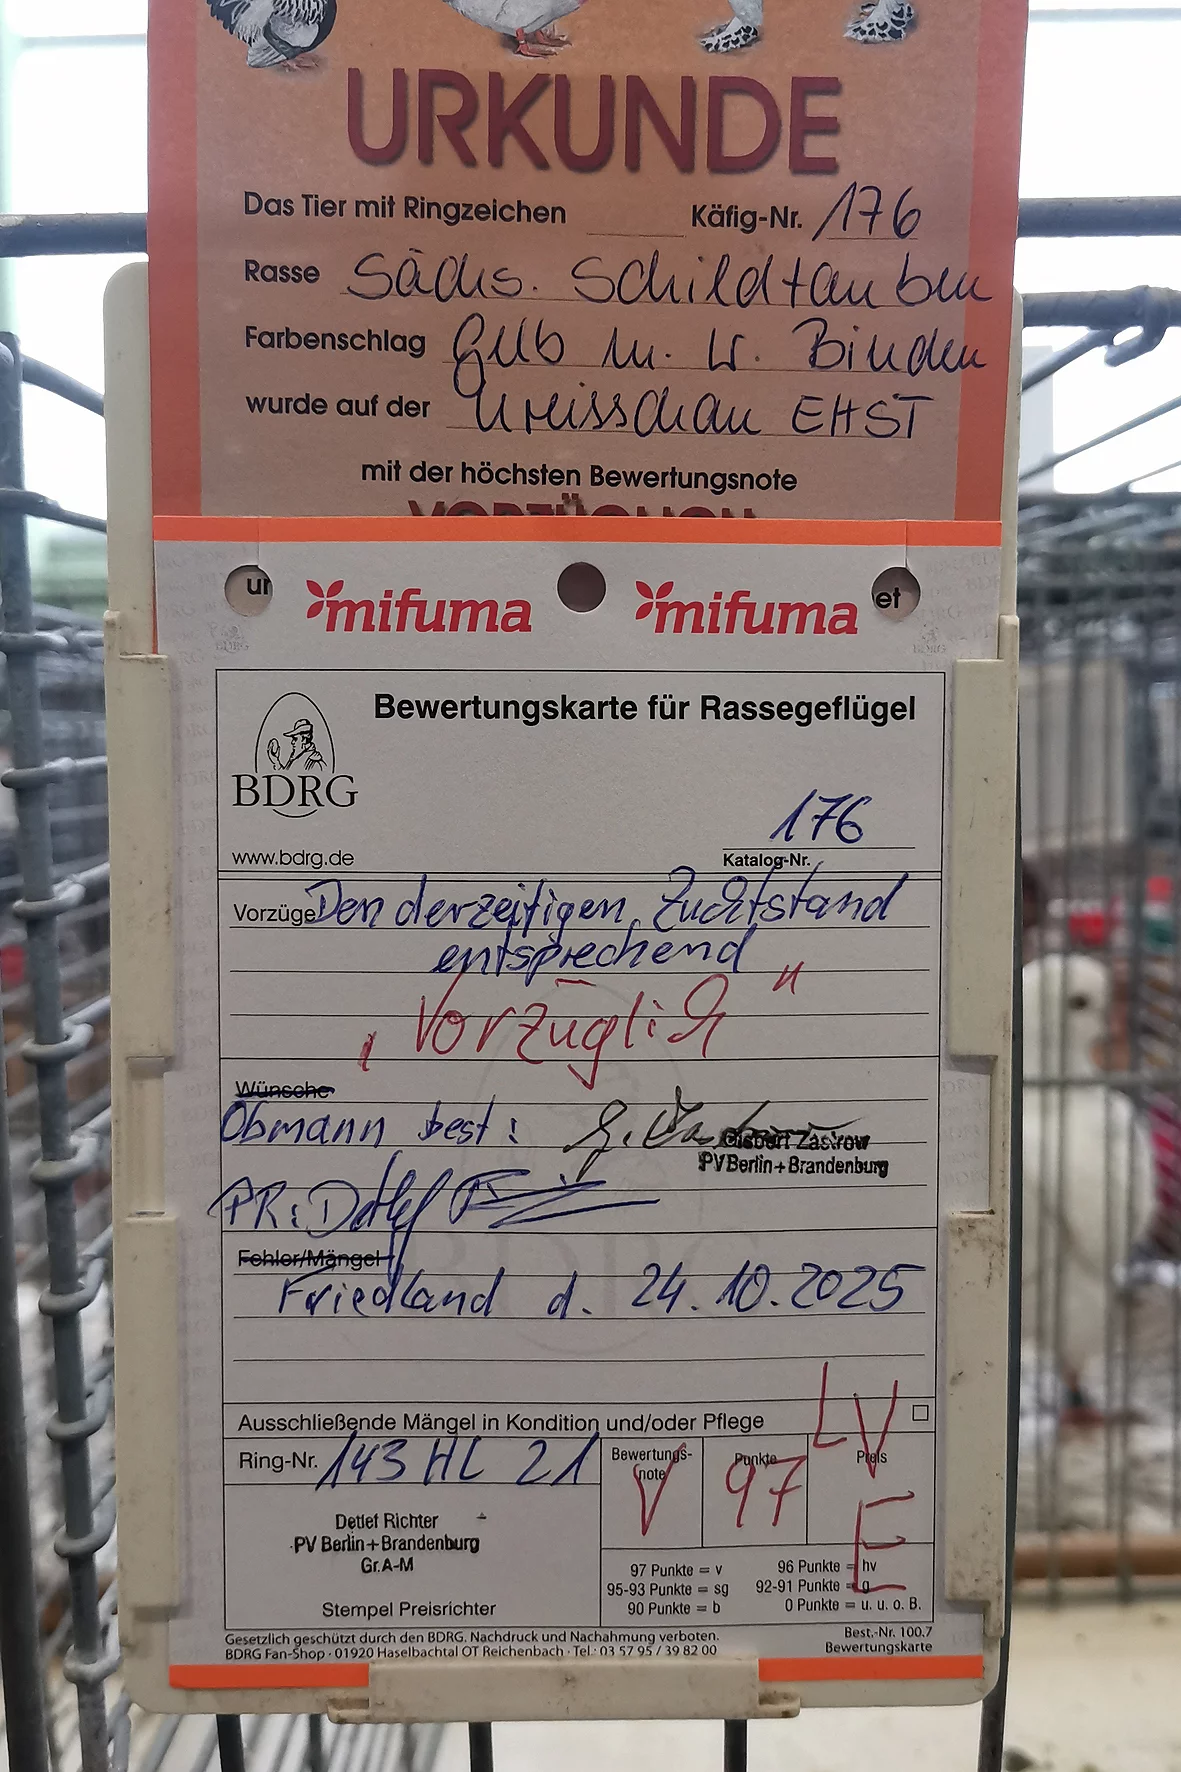 URKUNDE
Das Tier mit Ringzeichen Käfig-Nr. 176
Rasse Sächs. Schildtauben
Farbenschlag Gelb m. w. Binden
wurde auf der Kreisschau EHST
mit der höchsten Bewertungsnote
VORZÜGLICH
ur mifuma mifuma et
Bewertungskarte für Rassegeflügel
BDRG
176
www.bdrg.de Katalog-Nr.
Vorzüge Den derzeitigen Zuchtstand
entsprechend
"Vorzüglich"
Wünsche
Obmann best: Gisbert Zastrow
PV Berlin+Brandenburg
PR: Detlef
Fehler/Mängel
Friedland d. 24.10.2025
Ausschließende Mängel in Kondition und/oder Pflege
Ring-Nr. 143 HL 21
Bewertungs-
note Punkte Preis
V 97 LV
E
Detlef Richter
PV Berlin+Brandenburg
Gr.A-M
Stempel Preisrichter
97 Punkte = v 96 Punkte = hv
95-93 Punkte = sg 92-91 Punkte = g
90 Punkte = b 0 Punkte = u. u. o. B.
Gesetzlich geschützt durch den BDRG. Nachdruck und Nachahmung verboten.
BDRG Fan-Shop · 01920 Haselbachtal OT Reichenbach · Tel.: 03 57 95 / 39 82 00
Best.-Nr. 100.7
Bewertungskarte